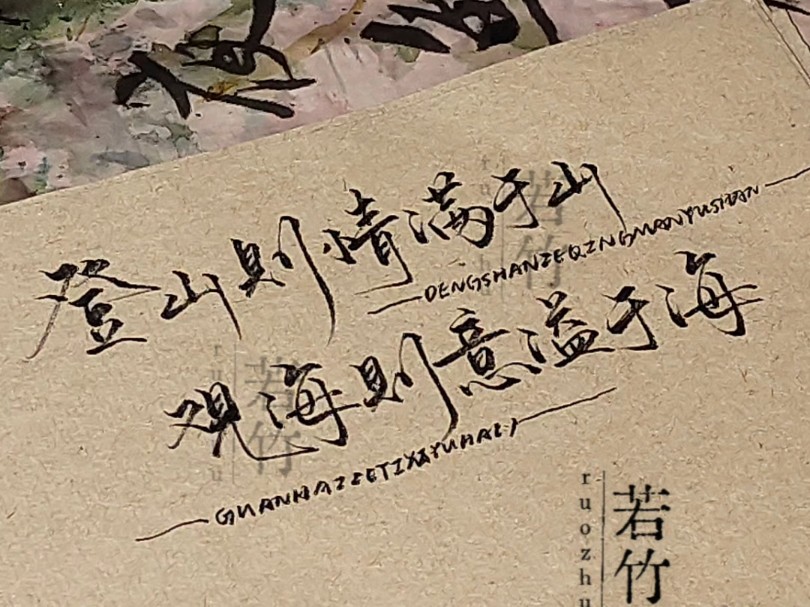 登山则情满于山
DENGSHANZEQINGMANYUSHAN
观海则意溢于海
若竹
ruozhu
若竹
若竹